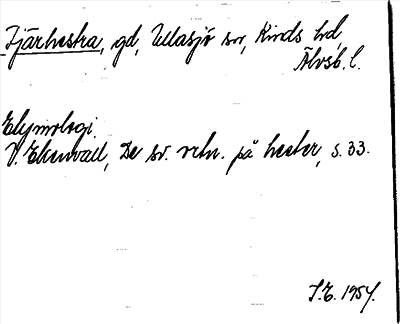 Fjärhestra, gd, Ullasjö sn, Kinds hd
Älvsb. l.
Etymologi.
V. Ekenvall, De sv. ortn. på hester, s. 33.
J.E. 1954.